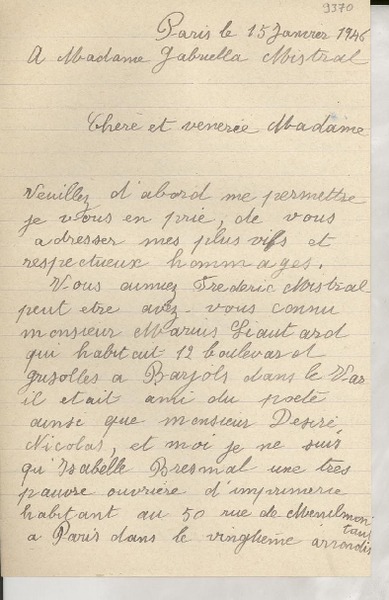 9370
Paris le 15 Janvier 1946
A Madame Gabriella Mistral
Cheré et venerée Madame
Veuillez d'abord me permettre
je vous en prie, de vous
adresser mes plus vifs et
respectueux hommages.
Vous aimiez Frederic Mistral
peut etre avez-vous connu
monsieur Marius Liautard
qui habitait 12 boulevard
Grisolles a Barjols dans le Var
il etait ami du poete
ainse que monsieur Desiré
Nicolas, et moi je ne suis
qu'Isabelle Bresmal une tres
pauvre ouvriere d'imprimerie
habitant au 50 rue de Menilmon
tant
a Paris dans le vingtieme arrondis